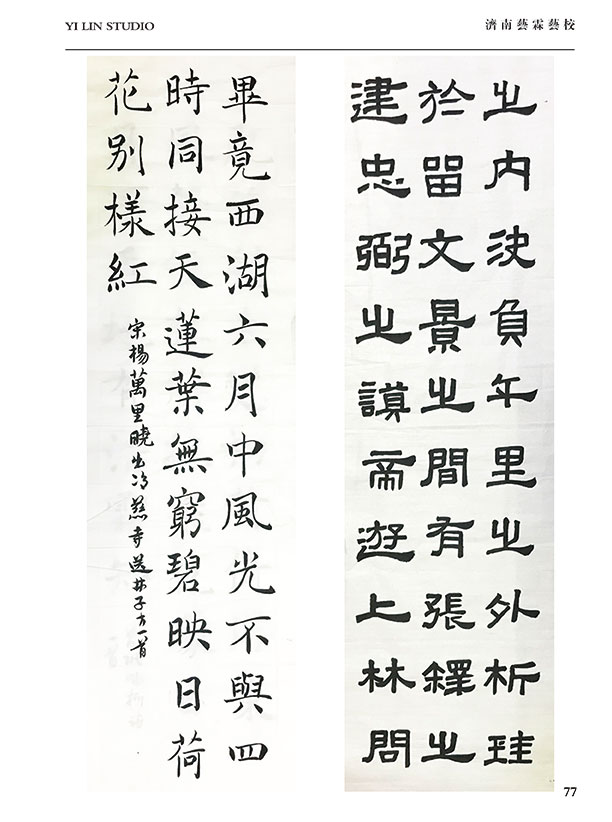 YI LIN STUDIO
濟南藝霖藝校
之内決負千里之外析珪
於留文景之間有張釋之
建忠弼之謨帝遊上林問
畢竟西湖六月中風光不與四
時同接天蓮葉無窮碧映日荷
花别樣紅
宋楊萬里曉出净慈寺送林子方一首
77